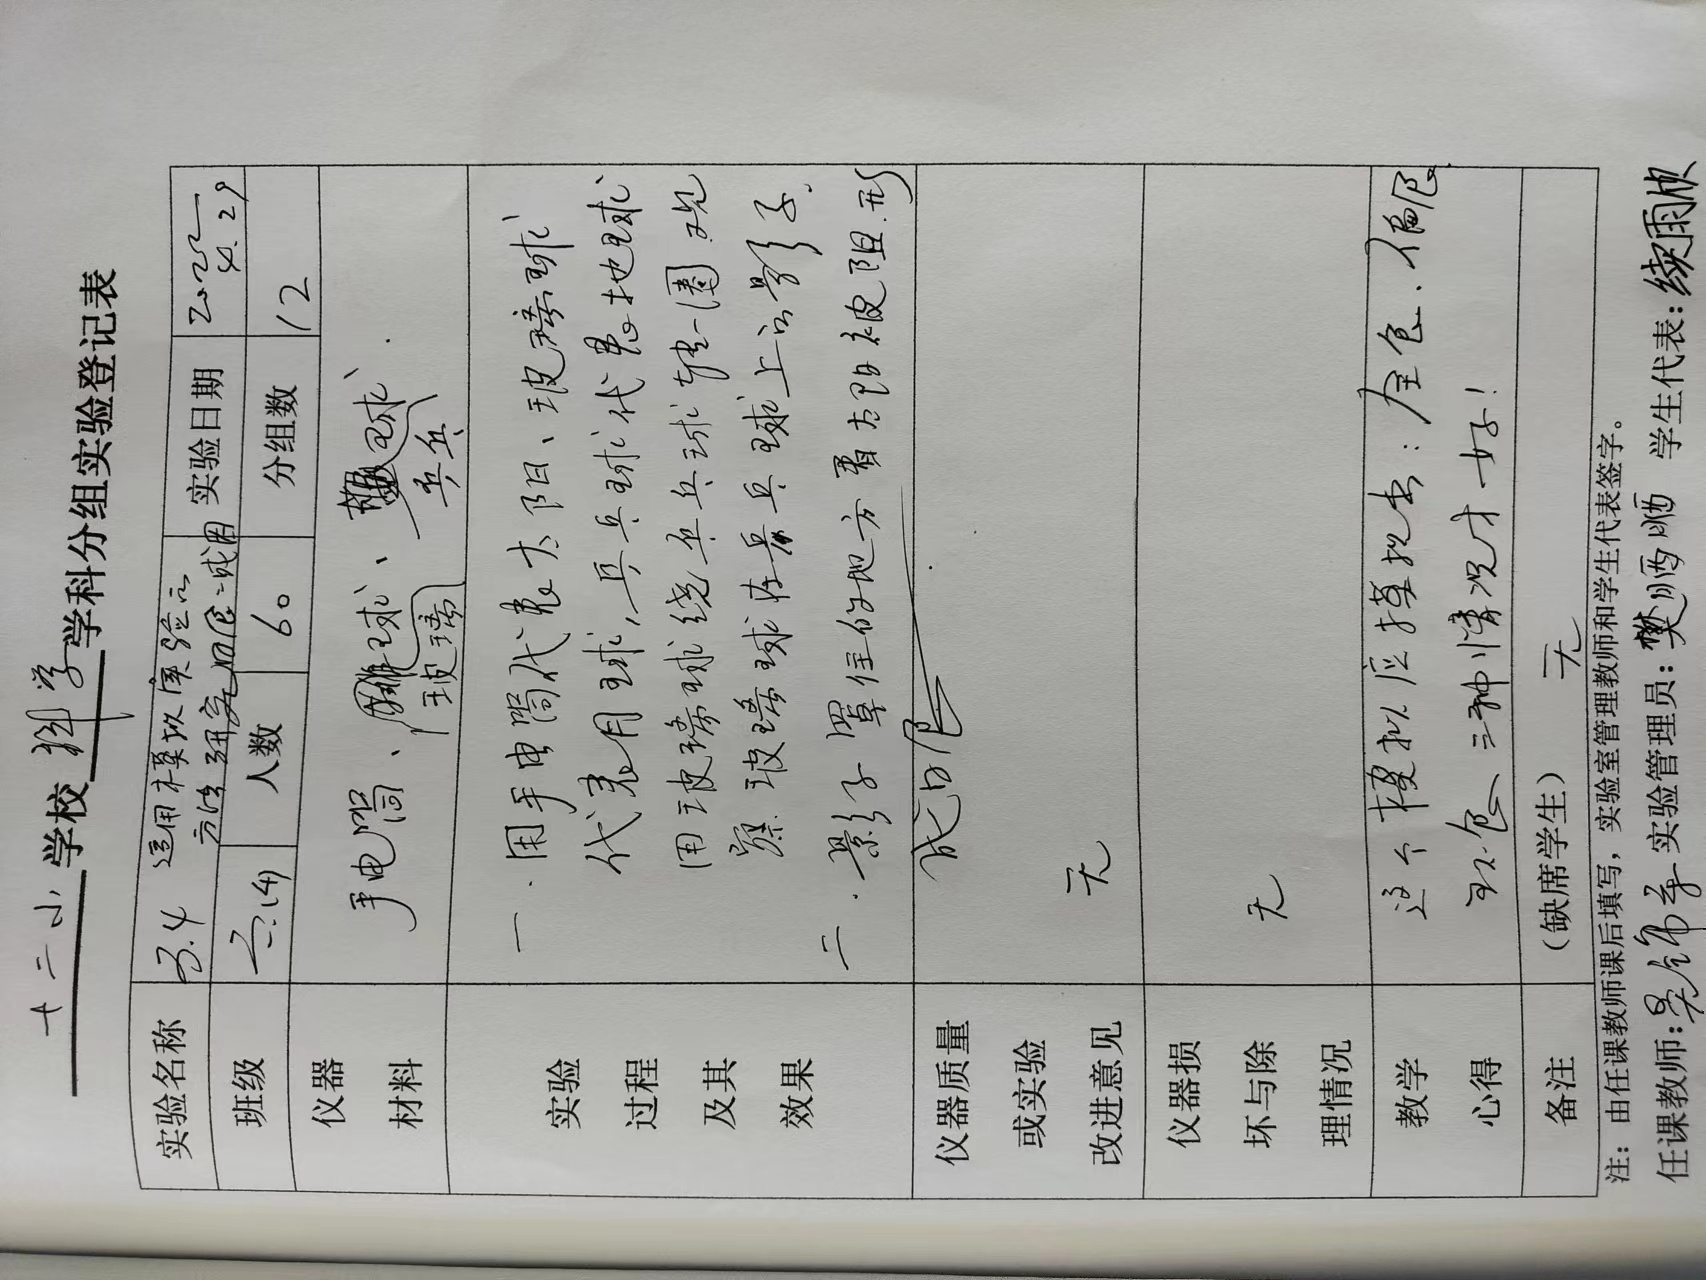 十二小学校科学学科分组实验登记表
实验名称 3.4 运用模拟实验的 实验日期 2022
方法研究日食的成因 4.29
班级 三.(4) 人数 60 分组数 12
仪器
材料
手电筒、玻璃球、乒乓球.
实验
过程
及其
效果
一.用手电筒代表太阳、玻璃球
代表月球,乒乓球代表地球
用玻璃球绕乒乓球转一圈观
察玻璃球在乒乓球上的影子.
二.影子罩住的地方看太阳被阻.形
成日食
仪器质量
或实验
改进意见
无
仪器损
坏与除
理情况
无
教学
心得
这个模拟应摸拟出:全食.偏食
环食三种情况才好!
备注 (缺席学生) 无
注:由任课教师课后填写,实验室管理教师和学生代表签字。
任课教师: 实验管理员:樊丽丽 学生代表:续雨欣